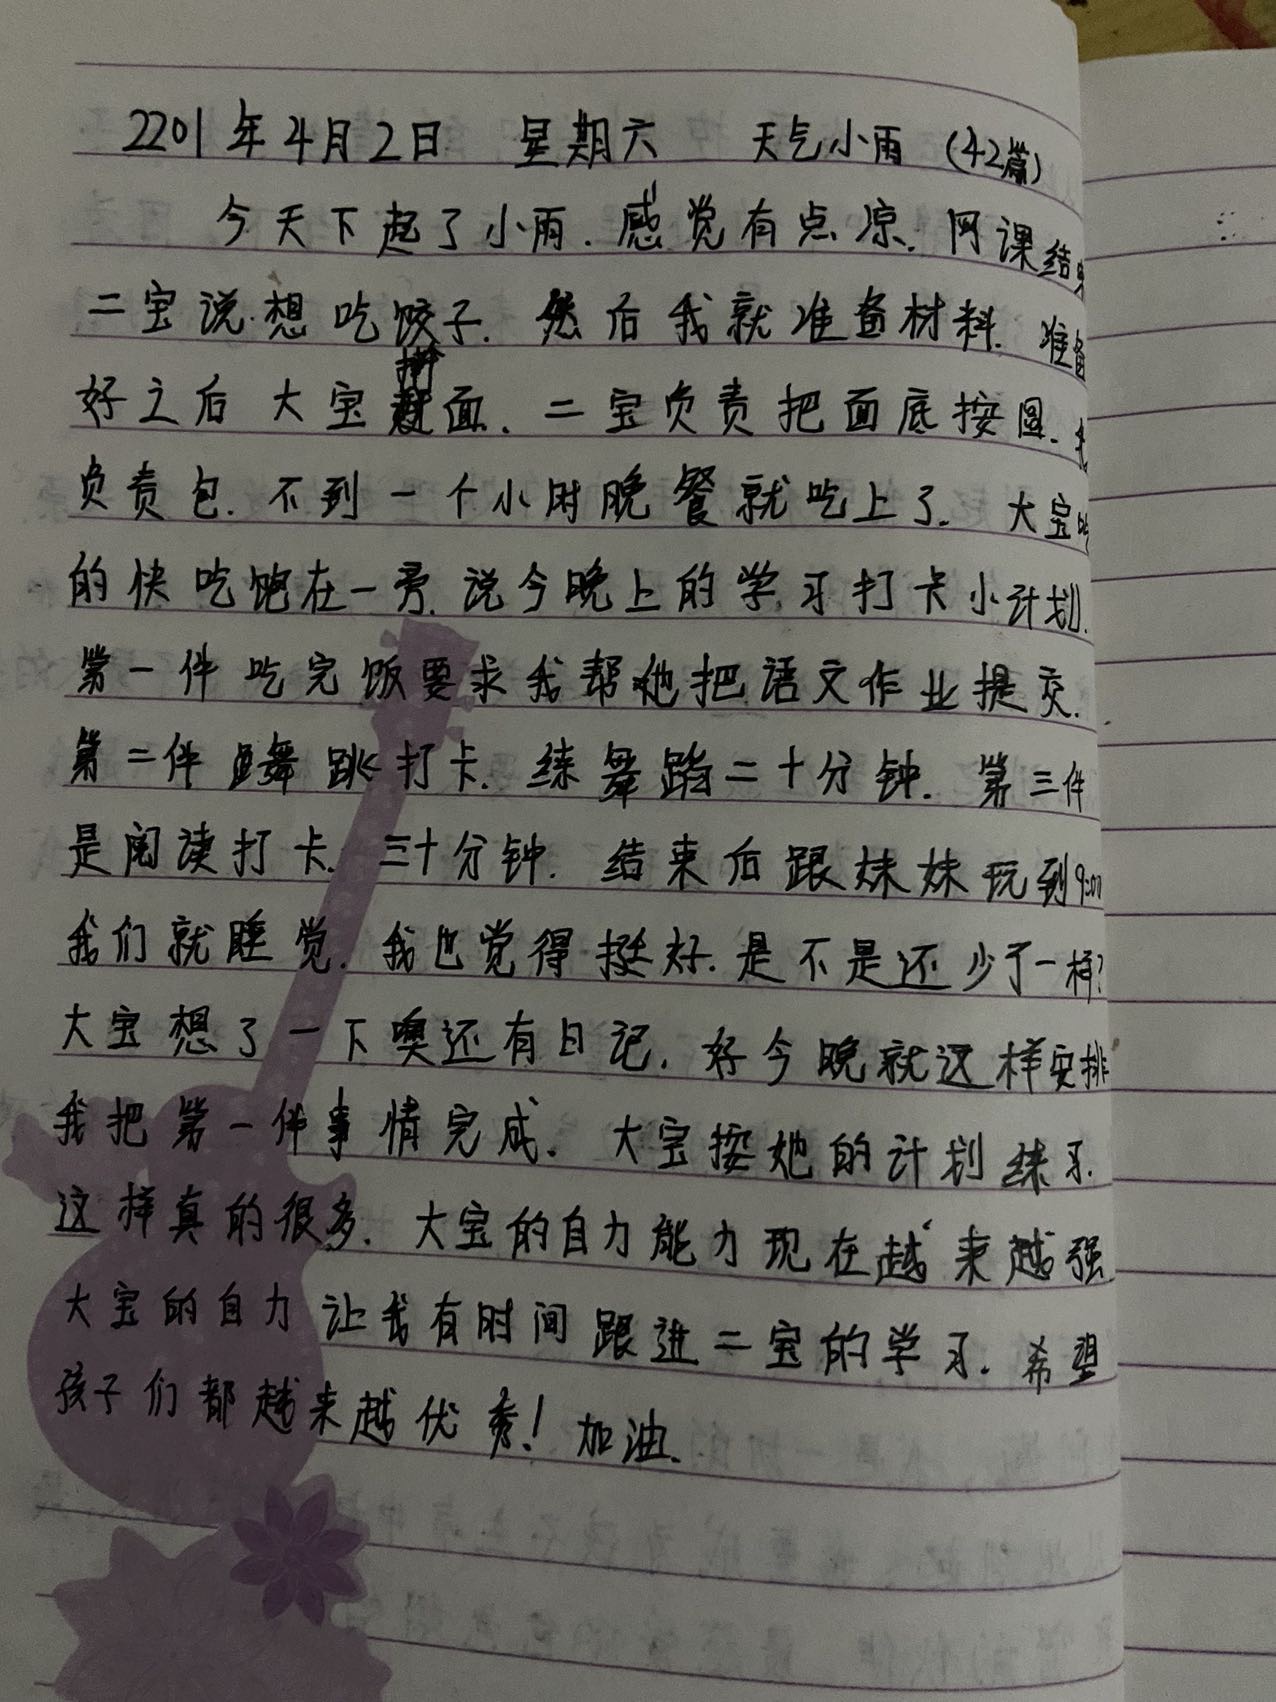 2201年4月2日 星期六 天气小雨 (42篇)
今天下起了小雨.感觉有点凉.网课结束
二宝说想吃饺子.然后我就准备材料.准备
好之后大宝擀面.二宝负责把面底按圆.我
负责包.不到一个小时晚餐就吃上了.大宝吃
的快吃饱在一旁.说今晚上的学习打卡小计划.
第一件吃完饭要求我帮她把语文作业提交.
第二件舞跳打卡.练舞蹈二十分钟.第三件
是阅读打卡.三十分钟.结束后跟妹妹玩到9:00
我们就睡觉.我也觉得挺好.是不是还少了一样?
大宝想了一下噢还有日记.好今晚就这样安排
我把第一件事情完成.大宝按她的计划练习.
这样真的很多.大宝的自力能力现在越来越强
大宝的自力让我有时间跟进二宝的学习.希望
孩子们都越来越优秀!加油.